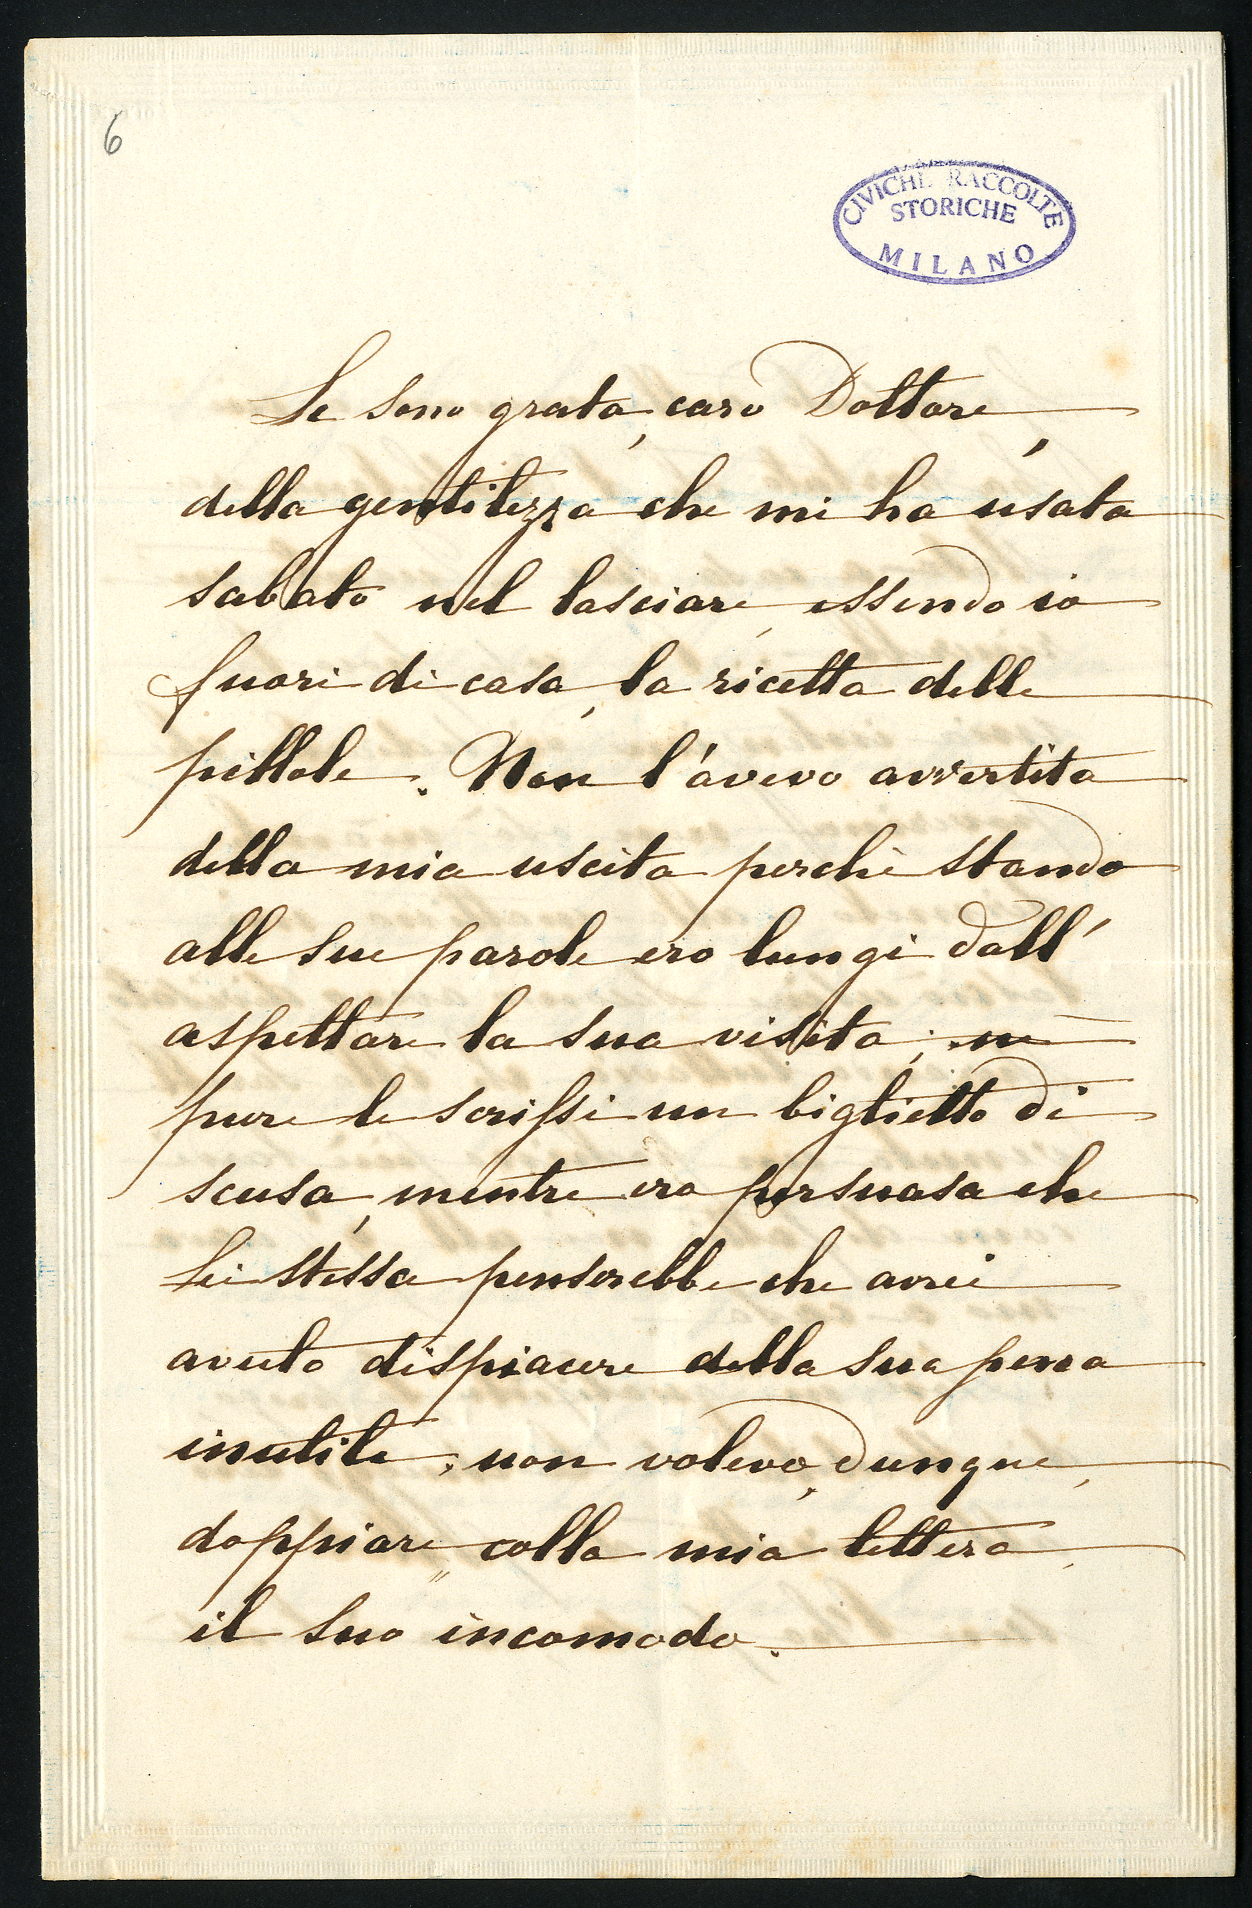 6
CIVICHE RACCOLTE
STORICHE
MILANO
Le sono grata, caro Dottore,
della gentilezza che mi ha usata
sabato nel lasciare, essendo io
fuori di casa, la ricetta delle
pillole. Non l'avevo avvertita
della mia uscita perchè stando
alle sue parole ero lungi dall'
aspettare la sua visita; ne
pure le scrissi un biglietto di
scusa, mentre era persuasa che
Lei stessa penserebbe che avrei
avuto dispiacere della sua pena
inutile; non volevo, dunque,
doppiare, colla mia lettera,
il suo incomodo.